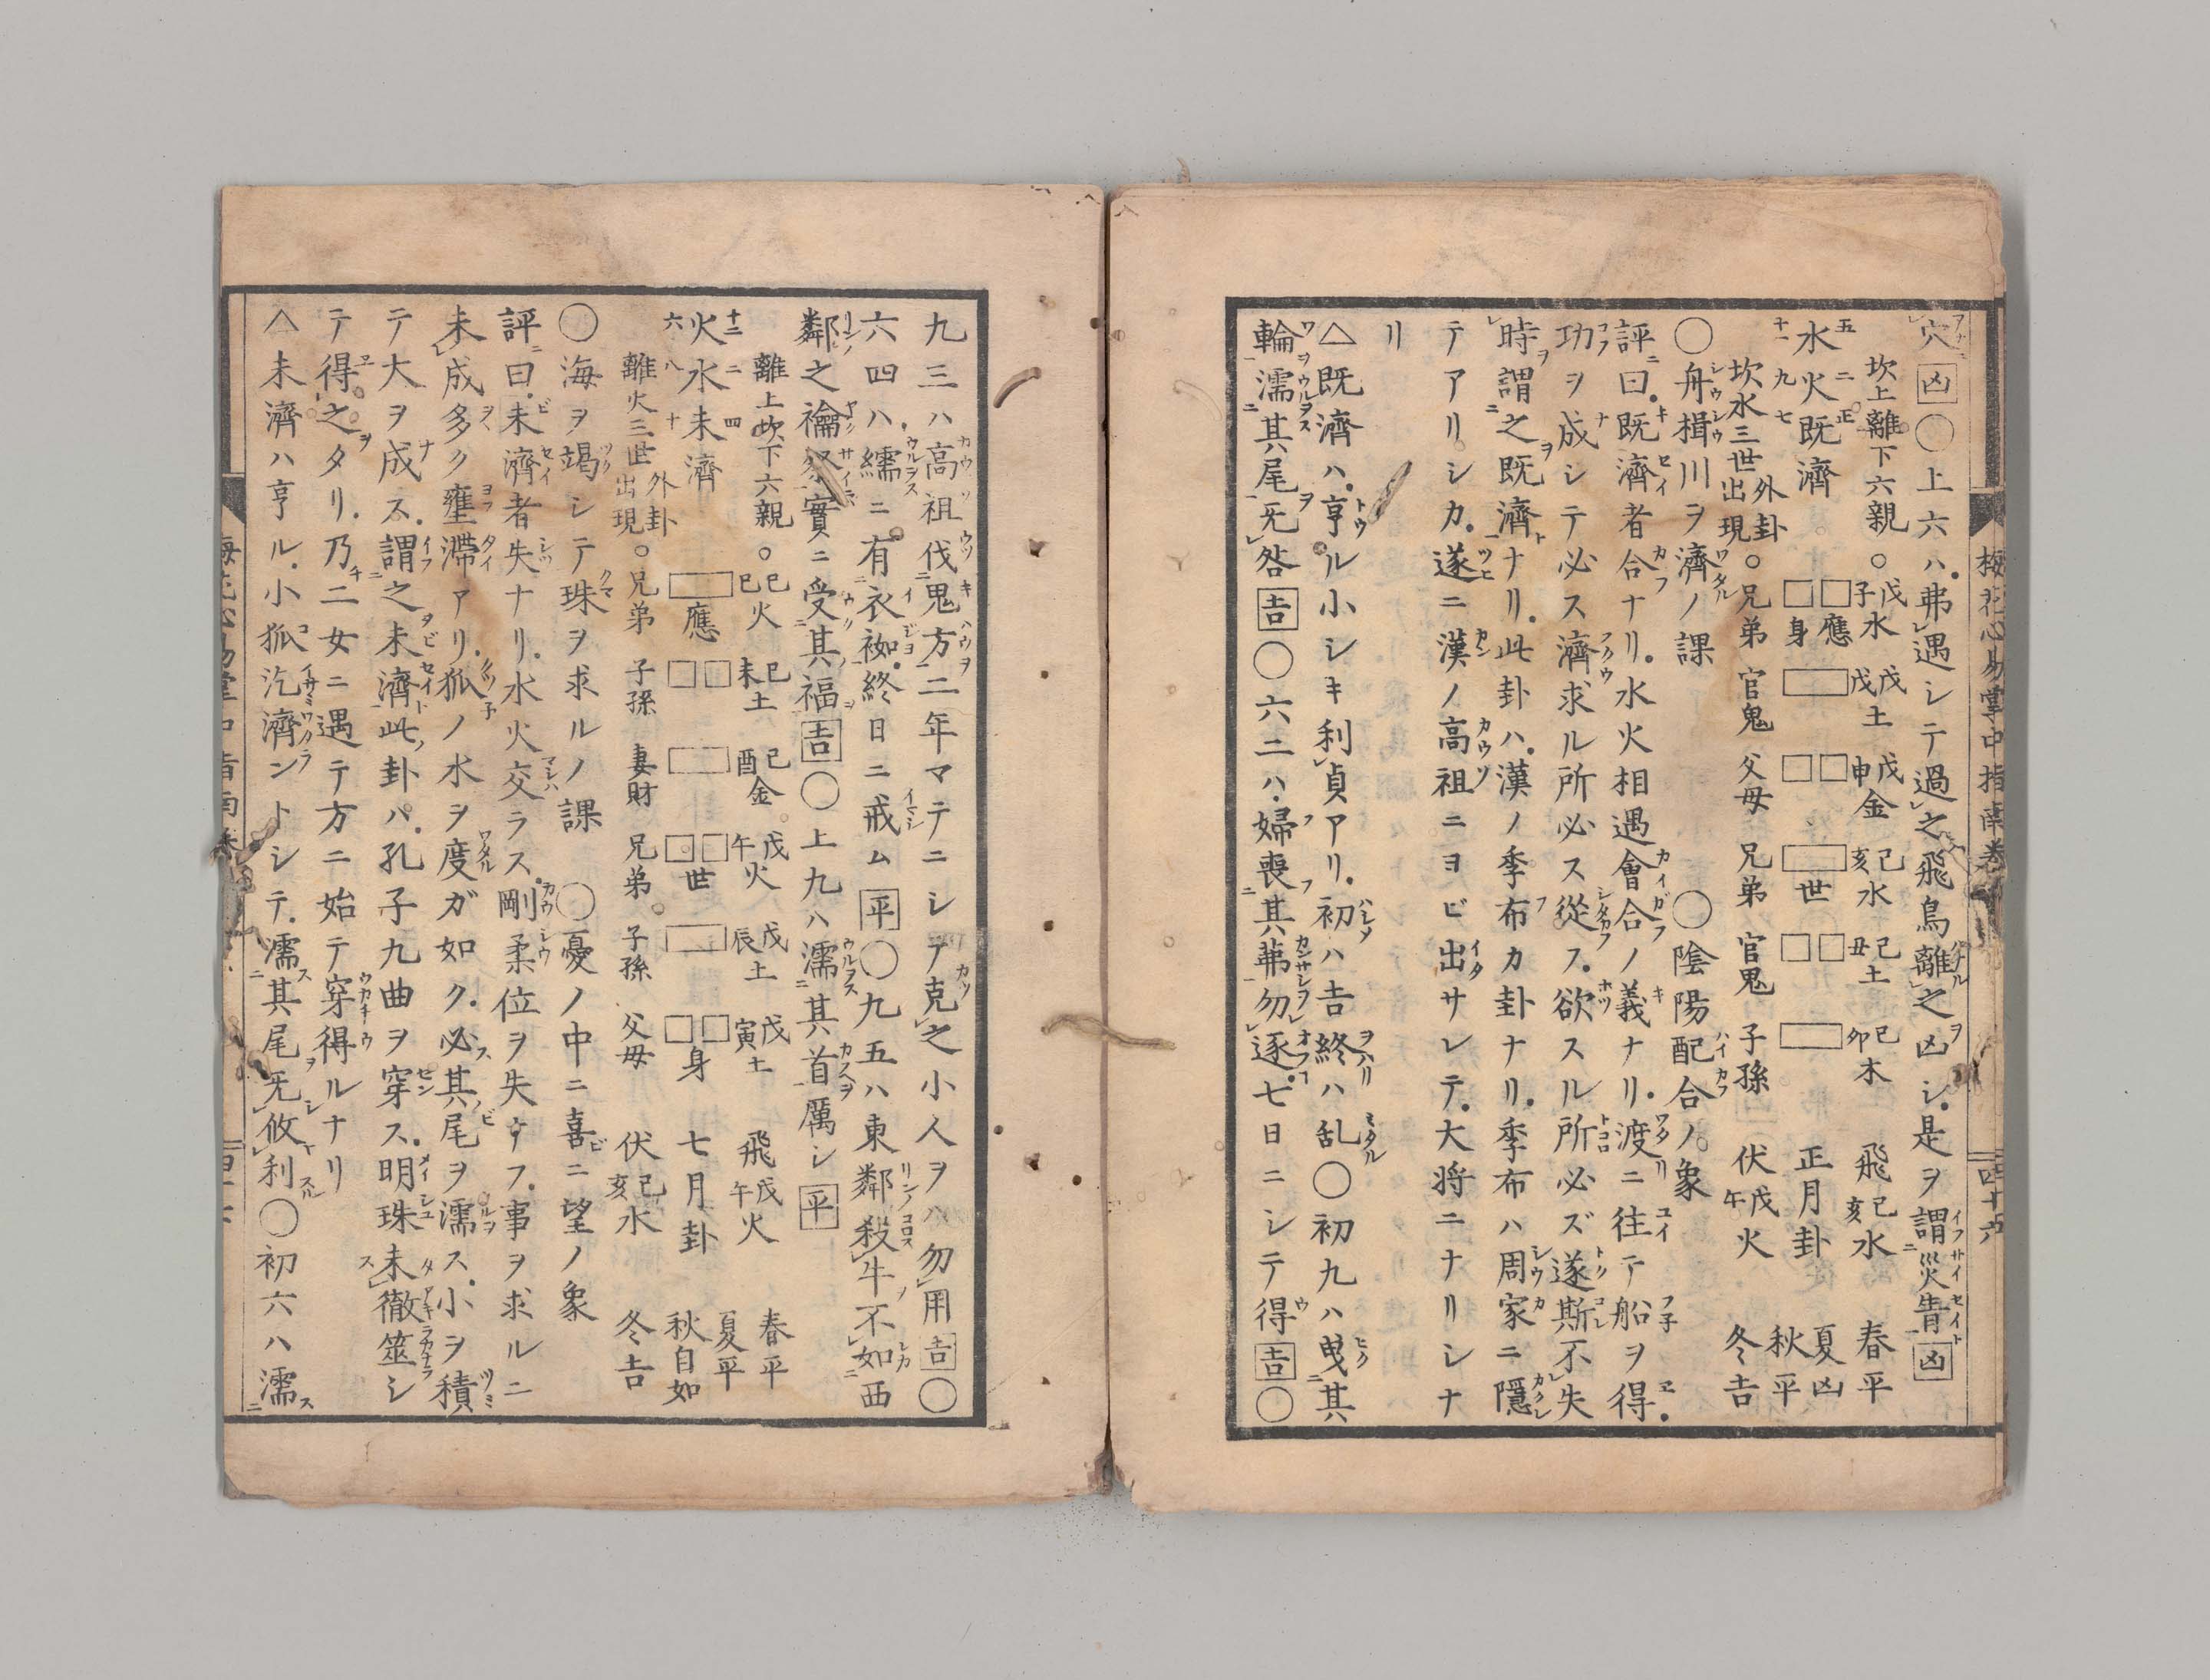 梅花心易掌中指南巻
四十六
穴凶〇上六ハ弗遇シテ過之飛鳥離之凶シ是ヲ謂災眚凶
坎上離下六親○戊子水 戊戌土 戊申金 己亥水 己丑土 己卯木 飛己亥水 春平
水火既濟 應 身 世 正月卦 夏凶 秋平
坎水三世外卦出現○兄弟 官鬼 父母 兄弟 官鬼 子孫 伏戊午火 冬吉
〇舟楫川ヲ濟ノ課 〇陰陽配合ノ象
評曰既濟者合ナリ水火相遇會合ノ義ナリ渡ニ往テ船ヲ得
功ヲ成シテ必ス濟求ル所必ス從フ欲スル所必ズ遂斯不失
時謂之既濟ナリ此卦ハ漢ノ季布カ卦ナリ季布ハ周家ニ隱
テアリシカ遂ニ漢ノ高祖ニヨビ出サレテ大将ニナリシナ
リ
△既濟ハ亨ル小シキ利貞アリ初ハ吉終ハ乱〇初九ハ曳其
輪濡其尾无咎吉〇六二ハ婦喪其茀勿逐七日ニシテ得吉〇
九三ハ高祖伐鬼方二年マテニシテ克之小人ヲハ勿用吉〇
六四ハ繻ニ有衣袽終日ニ戒ム平〇九五ハ東鄰殺牛不如西
鄰之禴祭實ニ受其福吉〇上九ハ濡其首厲シ平
離上坎下六親○己巳火 己未土 己酉金 戊午火 戊辰土 戊寅土 飛戊午火 春平
火水未濟 應 世 身 七月卦 夏平 秋自如
離火三世外卦出現○兄弟 子孫 妻財 兄弟 子孫 父母 伏己亥水 冬吉
〇海ヲ竭シテ珠ヲ求ルノ課 〇憂ノ中ニ喜ニ望ノ象
評曰未濟者失ナリ水火交ラス剛柔位ヲ失テフ事ヲ求ルニ
未成多ク壅滯アリ狐ノ水ヲ度ガ如ク必其尾ヲ濡ス小ヲ積
テ大ヲ成ス謂之未濟此卦ハ孔子九曲ヲ穿ス明珠未徹筮シ
テ得之タリ乃二女ニ遇テ方ニ始テ穿得ルナリ
△未濟ハ亨ル小狐汔濟ントシテ濡其尾无攸利〇初六ハ濡